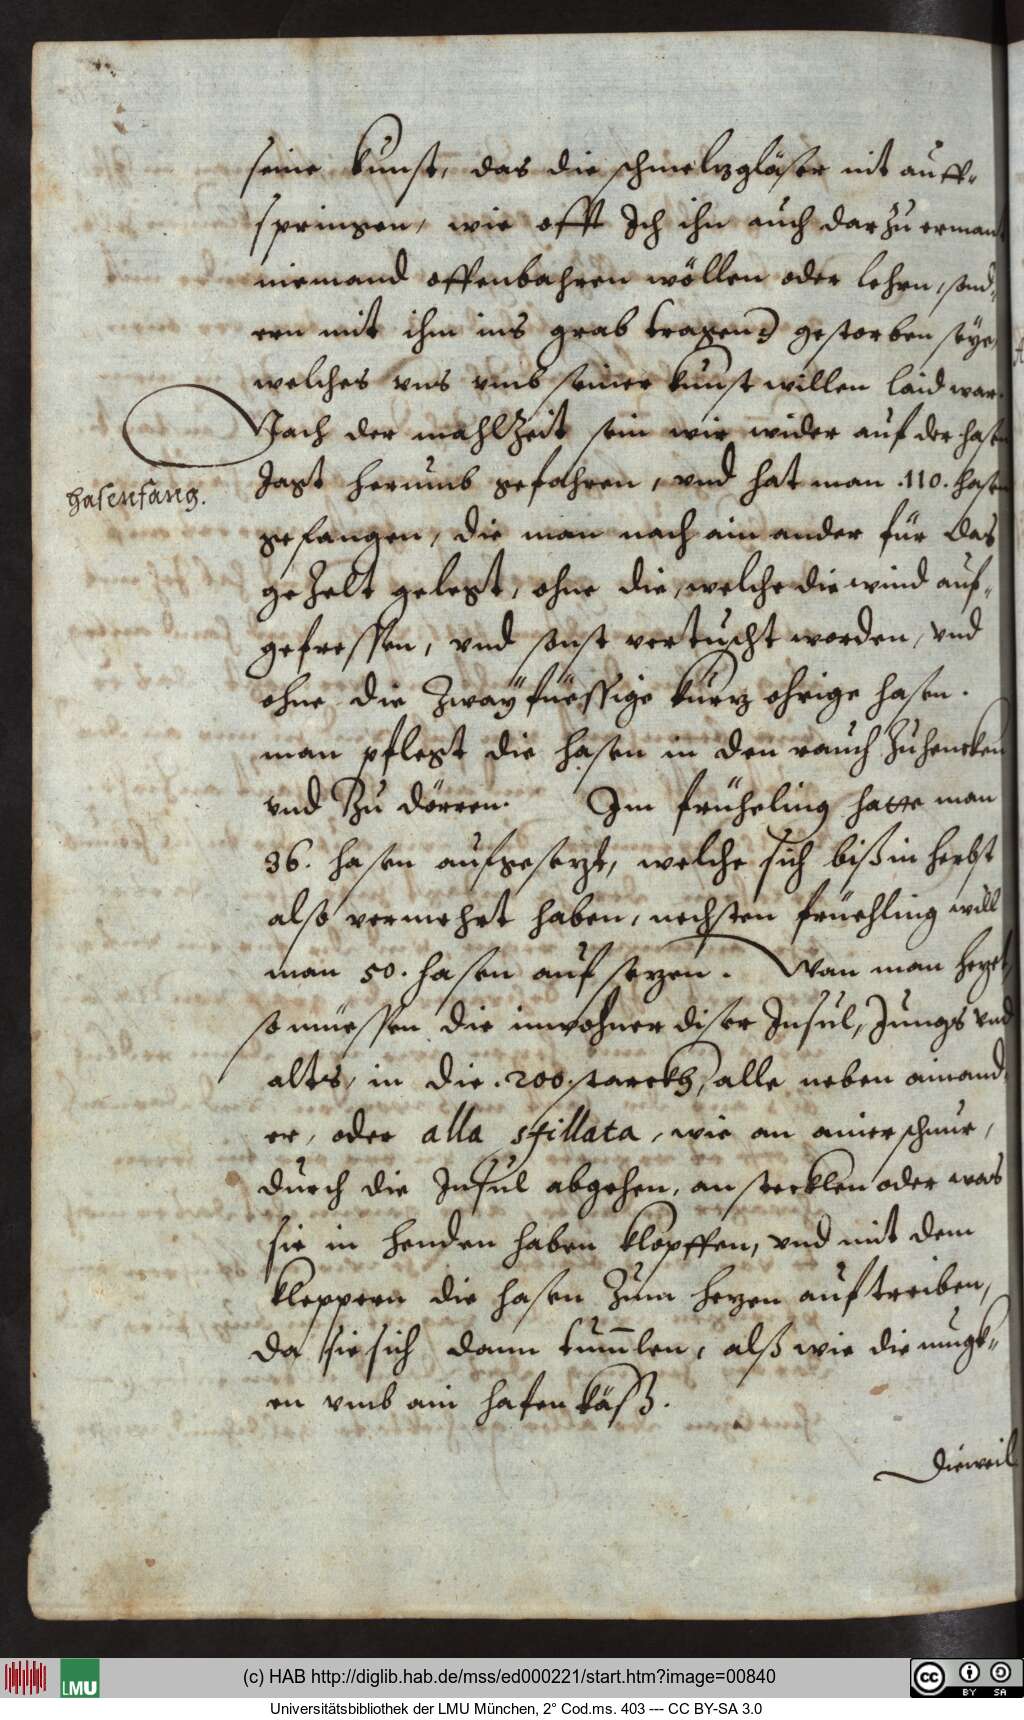 seine kunst, das die schmeltzgläser nit auff-
springen, wie offt Ich ihn auch darzu ermant
niemand offenbahren wöllen oder lehrn, sond-
ern mit ihm ins grab tragend gestorben seye,
welches vns vmb seiner kunst willen laid war.
Nach der mahlZeit sein wir wider auf der hasen
Jagt herumb gefahren, vnd hat man .110. hasen
hasenfang.
gefangen, die man nach ain ander für das
geZelt gelegt, ohne die, welche die wind auf-
gefressen, vnd sonst vertuscht worden, vnd
ohne die Zwayfüessige kurz ohrige hasen.
man pflegt die hasen in den rauch Zu hencken
vnd Zu dörren. Im früheling hatte man
36. hasen aufgesezt, welche sich biß in herbst
also vermehrt haben, nechsten früehling will
man 50. hasen auf sezen. Wan man hezet,
so müessen die inwohner diser Insul, Jungs vnd
alts, in die .200. starckh, alle neben ainand-
er, oder alla sfillata, wie an ainer schnur,
durch die Insul abgehen, an stecklen oder was
sie in henden haben klopffen, vnd mit dem
kleppern die hasen Zum hezen auftreiben,
da sie sich dann tum̄len, alß wie die mugk-
en vmb ain hafen käß.
Dieweil
(c) HAB http://diglib.hab.de/mss/ed000221/start.htm?image=00840
LMU
cc BY SA
Universitätsbibliothek der LMU München, 2° Cod.ms. 403 --- CC BY-SA 3.0